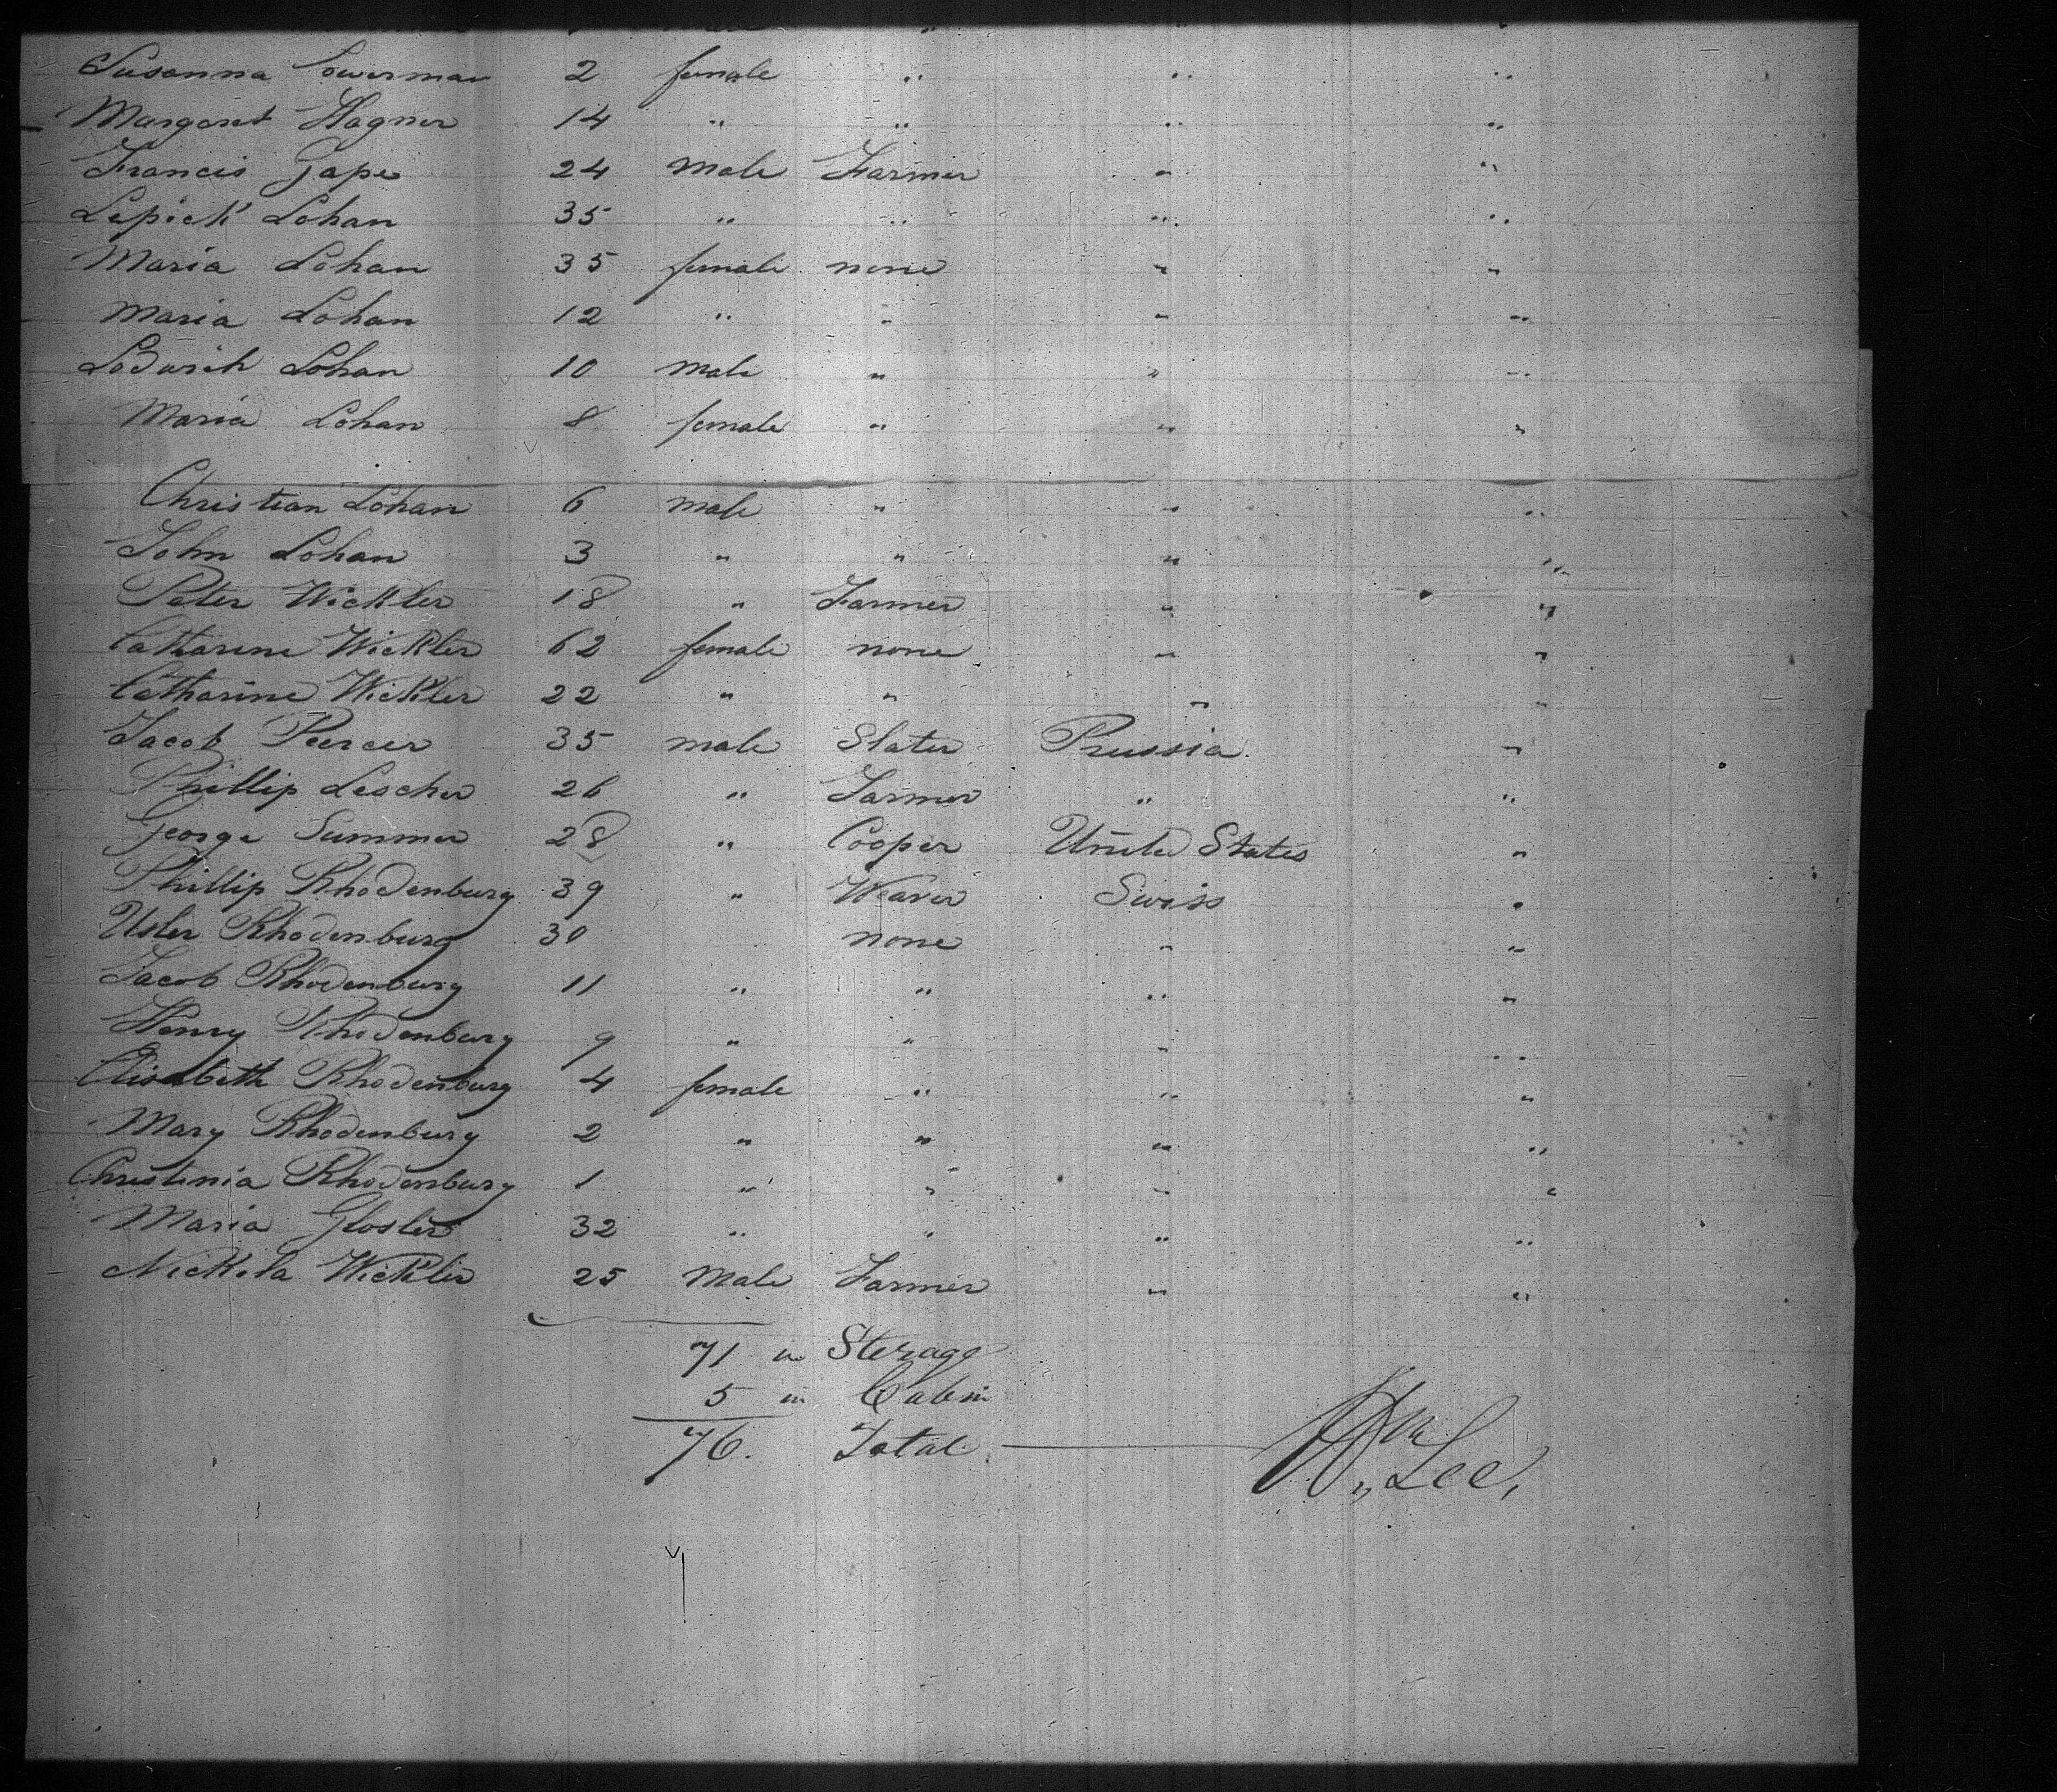 Susanna Lowerman 2 female " " "
Margaret Hagner 14 " " " "
Francis Gape 24 Male Farmer " "
Lepick Lohan 35 " " " "
Maria Lohan 35 female none " "
Maria Lohan 12 " " " "
Lodwick Lohan 10 Male " " "
Maria Lohan 8 female " " "
Christian Lohan 6 male " " "
John Lohan 3 " " " "
Peter Wickler 18 " Farmer " "
Catharine Wickler 62 female none " "
Catharine Wickler 22 " " " "
Jacob 35 male Slater Prussia "
Phillip Lescher 26 " Farmer " "
George Summer 28 " Cooper United States "
Phillip Rhodenburg 39 " Weaver Swiss "
Usler Rhodenburg 30 none " "
Jacob Rhodenburg 11 " " " "
Henry Rhodenburg 9 " " " "
Elisabeth Rhodenburg 4 female " " "
Mary Rhodenburg 2 " " " "
Christinia Rhodenburg 1 " " " "
Maria Gloster 32 " " " "
Nickila Wickler 25 Male Farmer " "
71 in Sterage
5 in Cabin
76. Total Wm Lee,